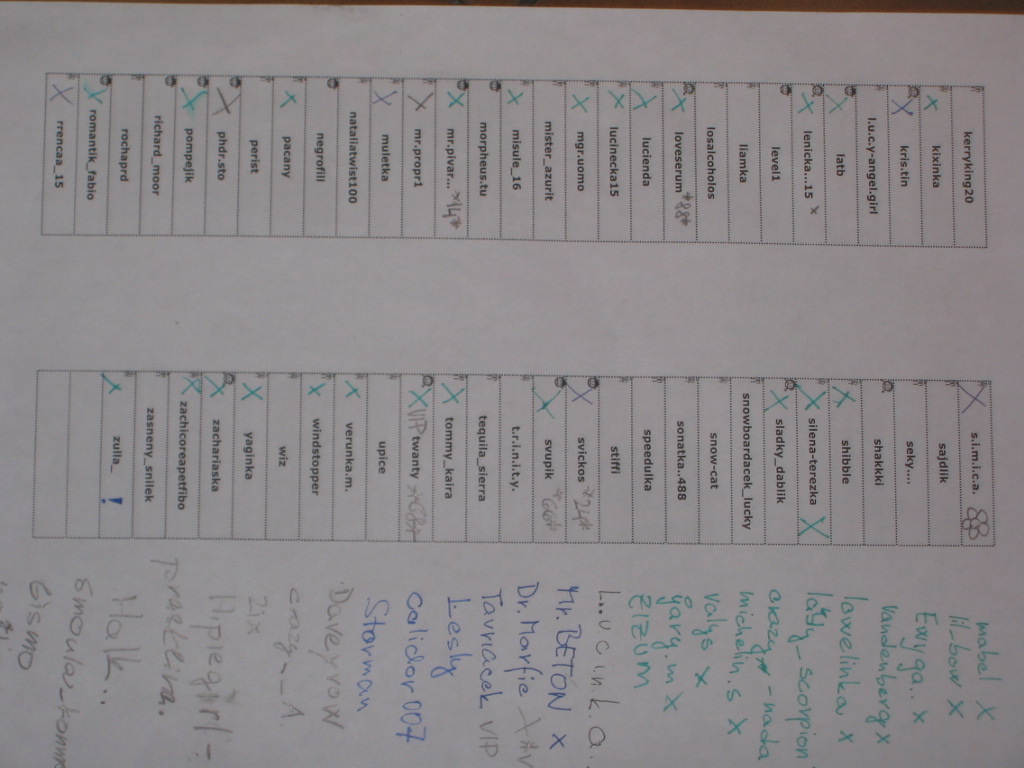 kerryking20
X kixinka
X kris.tin
l.u.c.y-angel.girl
X latb
X lenicka...15 x
level1
liamka
losalcoholos
X loveserum *88*
X lucienda
X lucinecka15
X mgr.uomo
mister_azurit
X misule_16
morpheus.tu
X mr.pivar... *14*
X mr.propr1
X muletka
nataliatwist100
negrofill
X pacany
perist
X phdr.sto
X pompejik
richard_moor
rochaprd
X romantik_fabio
X rrencaa_15
X s.i.m.i.c.a. 88
sajdlik
seky...
shakkki
X shibble
X silena-terezka X
X sladky_dablik
snowboardacek_lucky
snow-cat
sonatka.488
speedulka
stiffi
X svickos *24*
X svupik *66*
t.r.i.n.i.t.y.
tequila_sierra
X tommy_kaira
X VIP twanty *68*
upice
X verunka.m.
X windstopper
wiz
X yaginka
X zachariaska
X zachicoreapetfibo
zasneny_snilek
X zulia_ !
mabel X
lil_bow X
Ewyga.. x
vandenberg x
lawelinka x
lady_scorpion
crazy-nada
michelin.s X
valys x
gary.m X
ZIZUM
l...u.c.i.n.k.a.
Mr. BETON x
Dr. Marfie
Tavriacek VIP
Lesly
calidor007
Starman
Daveyrow
crazy-_A
2ix
Hipiegirl-
Halk..
smoula_tommy
Gismo